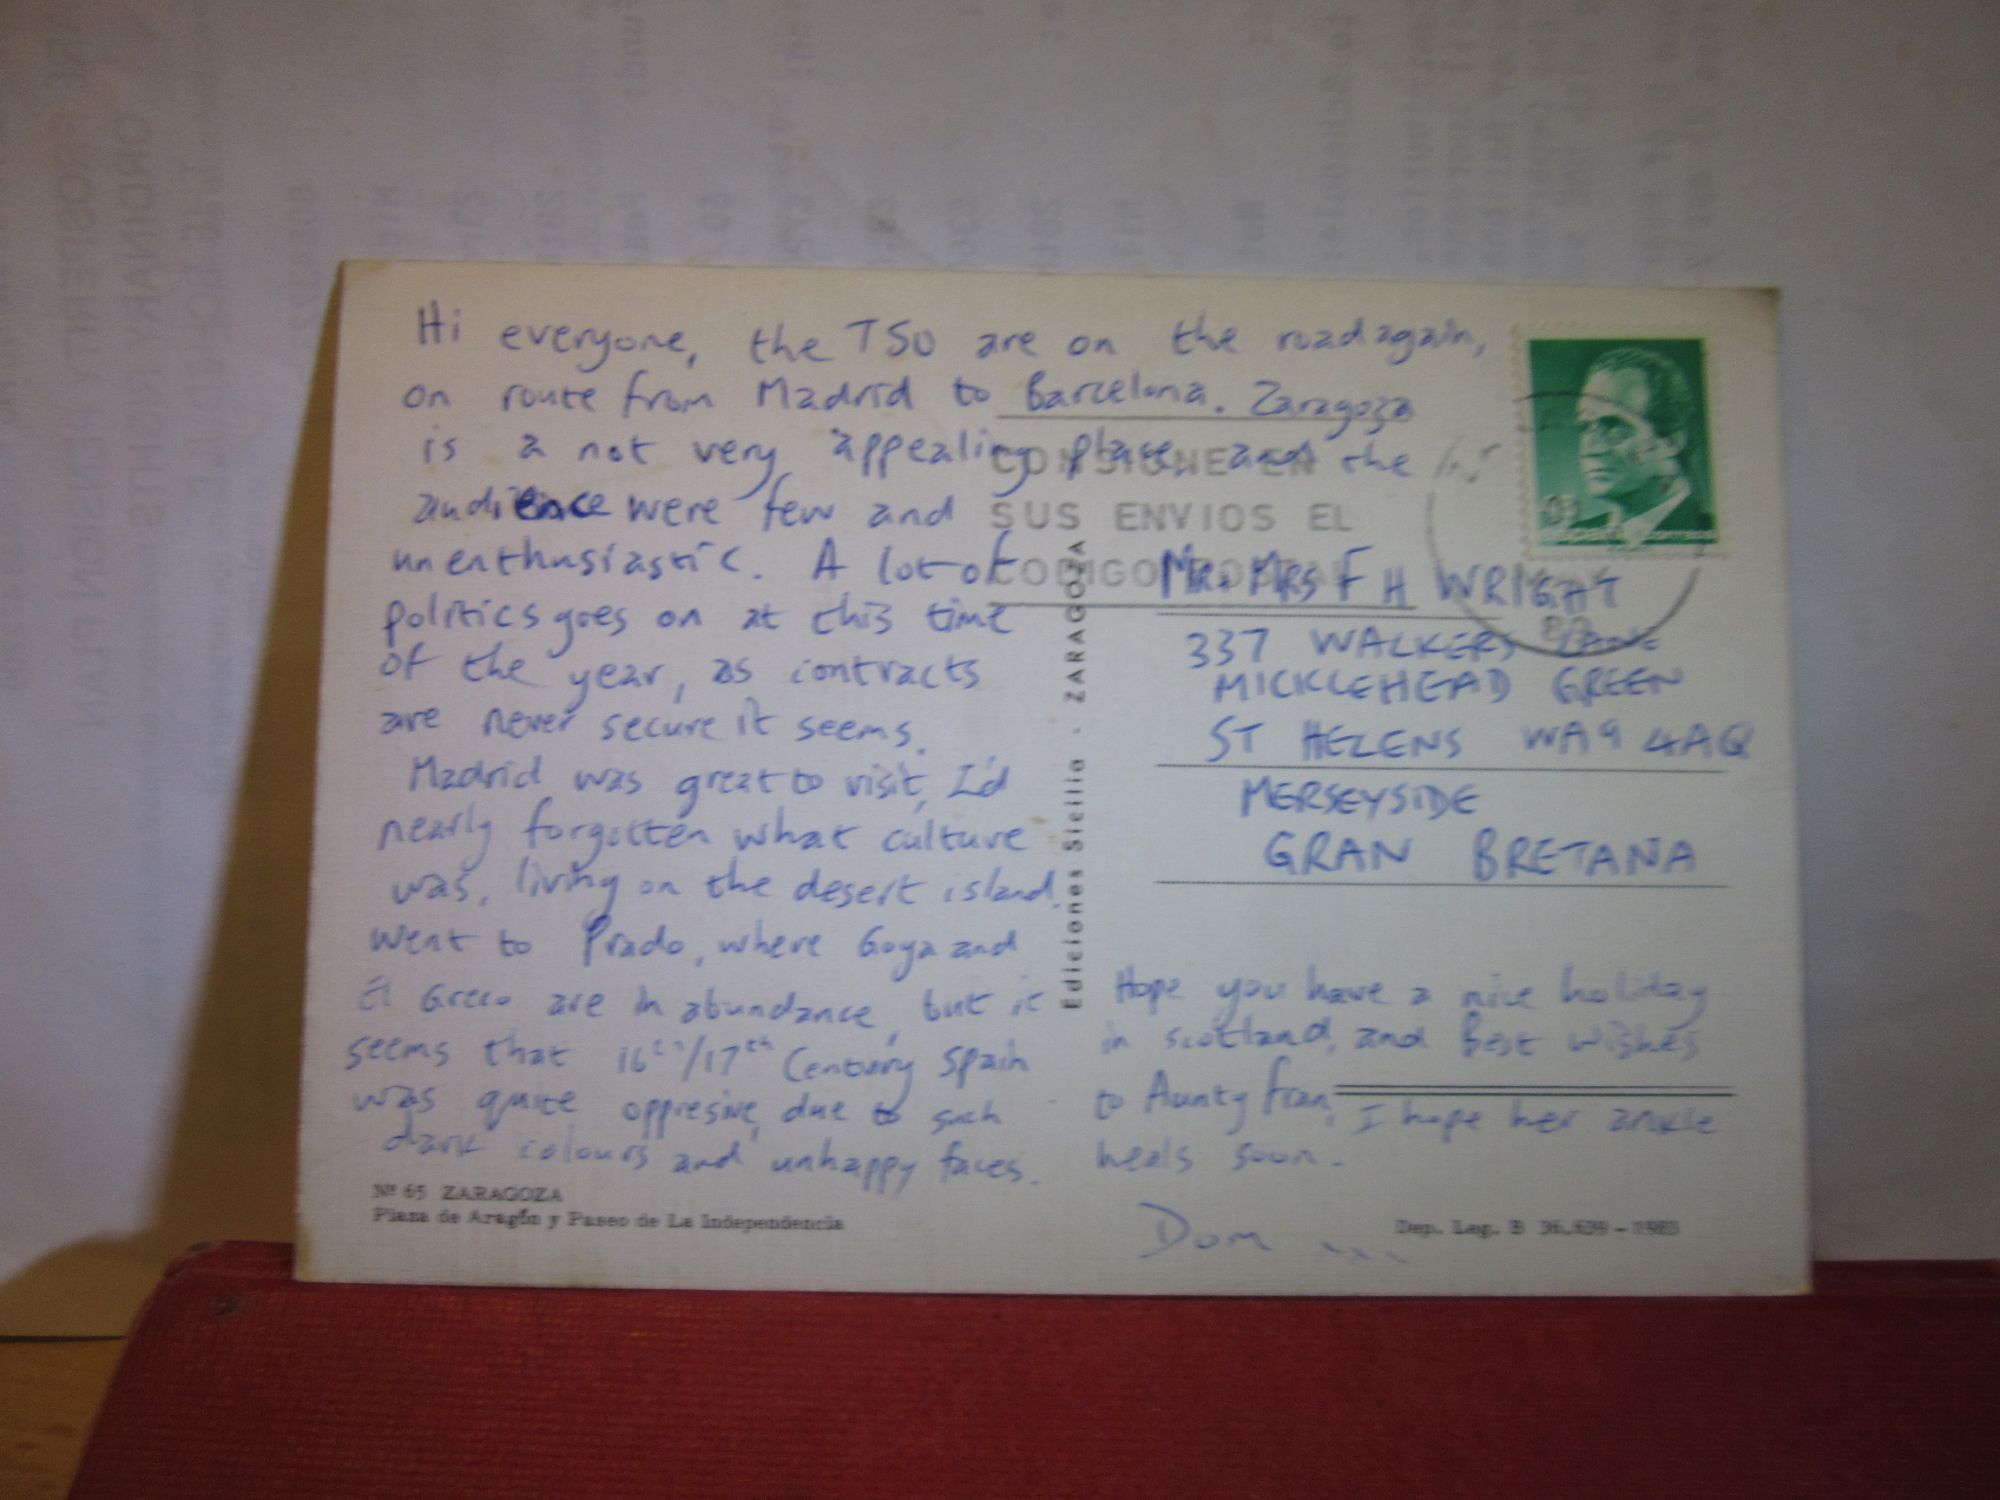 Hi everyone, the TSO are on the road again,
on route from Madrid to Barcelona. Zaragoza
is a not very appealing place and the
audience were few and
unenthusiastic. A lot of
politics goes on at this time
of the year, as contracts
are never secure it seems.
Madrid was great to visit, I'd
nearly forgotten what culture
was, living on the desert island.
Went to Prado, where Goya and
El Greco are in abundance, but it
seems that 16th/17th Century Spain
was quite oppresive, due to such
dark colours and unhappy faces.
Nº 65 ZARAGOZA
Plaza de Aragón y Paseo de La Independencia
Ediciones Sicilia - ZARAGOZA
CONSIGNE EN
SUS ENVIOS EL
CODIGO POSTAL
España correos
MR. MRS F H WRIGHT
337 WALKERS LANE
MICKLEHEAD GREEN
ST HELENS WA9 4AQ
MERSEYSIDE
GRAN BRETANA
Hope you have a nice holiday
in scotland, and Best wishes
to Aunty Fran, I hope her ankle
heals soon.
Dom xxx
Dep. Leg. B 36.639-1983